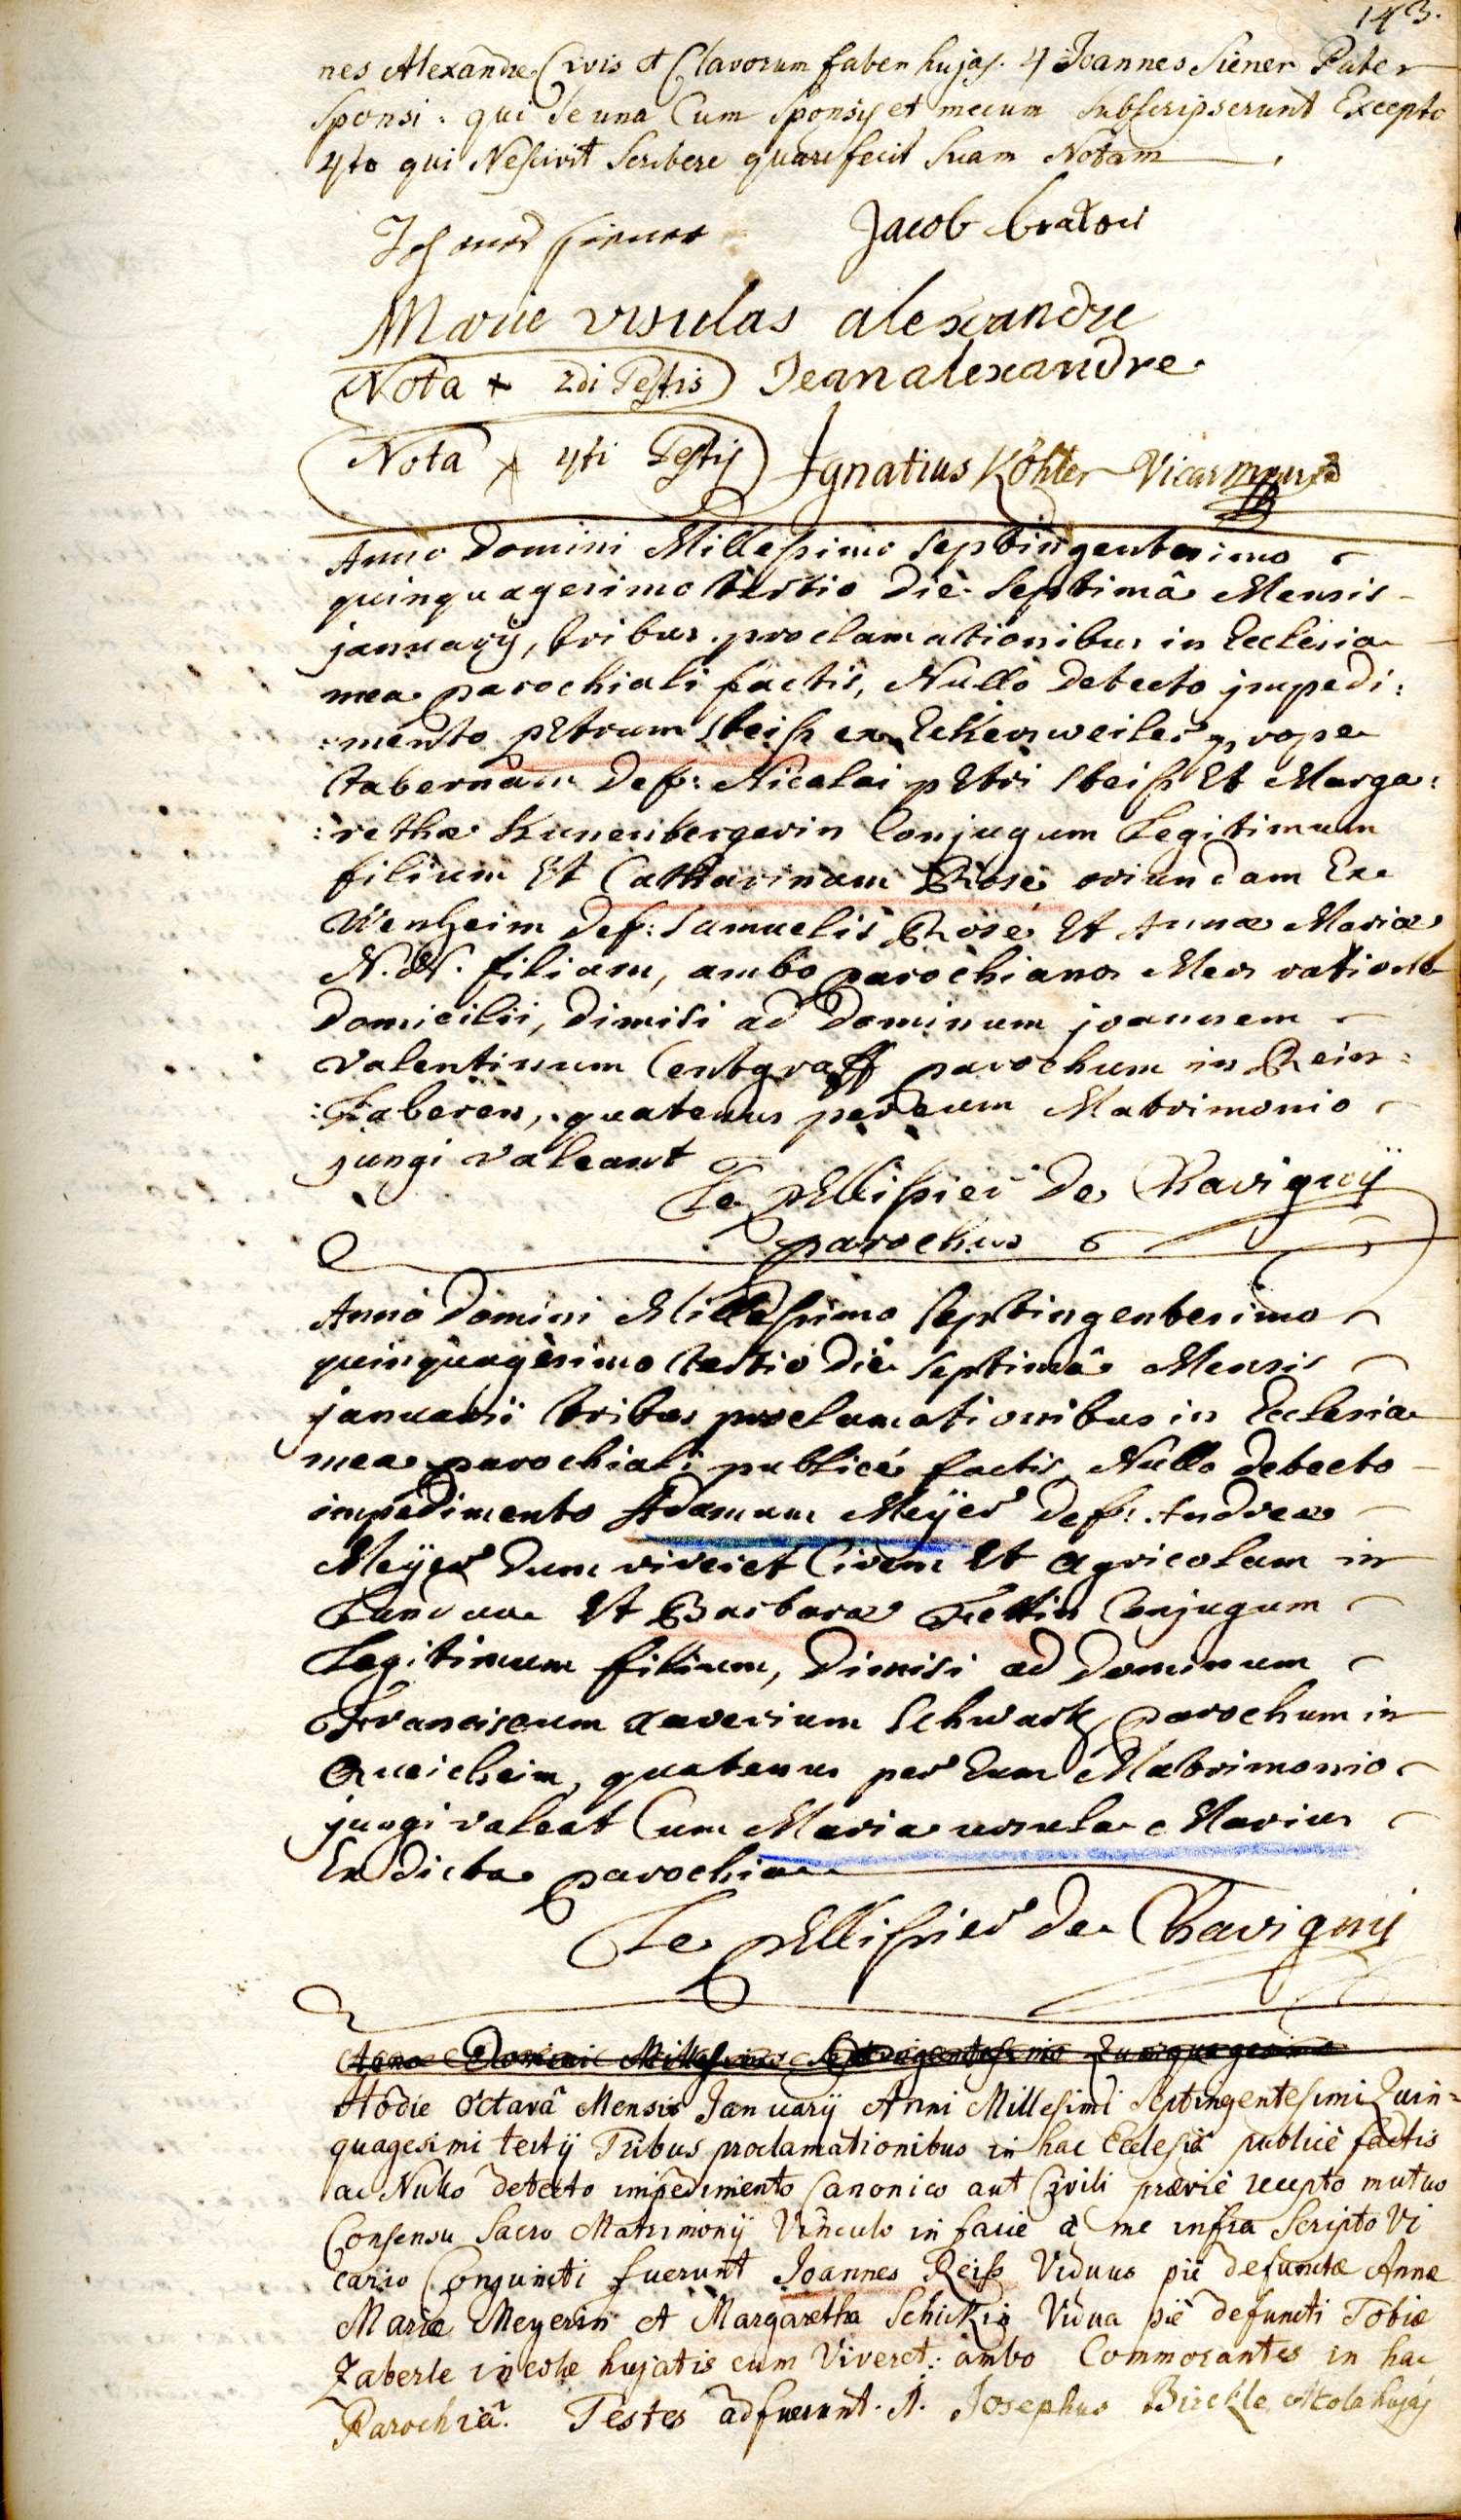 143.
nes Alexandre Civis et Clavorum faber hujas. 4 Joannes Siener Pater
Sponsi: qui se una Cum Sponsis et mecum Subscripserunt Excepto
4to qui Nescivit Scribere quare fecit Suam Notam
Jacob
Marie ursulas alexandre
Nota + 2di Testis Jean alexandre
Nota + 4ti Testis Ignatius Köhler Vicar mpria
Anno Domini Millessimo Septingentesimo
quinquagesimo tertio Die Septimâ Mensis
januarij, tribus proclamationibus in Ecclesia
mea parochiali factis, Nullo Detecto jmpedi:
:mento petrum Steiss ex Eckersweiler prope
tabernam Def: Nicolai petri Steiss Et Marga:
:rethae Kunenbergerin Conjugum Legitimum
filium Et Catharinam Rose oriundam Ex
Wenheim Def: Samuelis Rosé Et Annae Mariae
N. N. filiam, ambo parochianos Meos ratione
Domicilii, Dimisi ad Dominum joannem
valentinum Centgraff parochum in Rein:
:Zaberen, quatenus per eum Matrimonio
jungi valeant
Le pellissier De Chavignÿ
parochus
Anno Domini Millessimo Septingentesimo
quinquagesimo tertio Die Septimâ Mensis
januarii tribus proclamationibus in Ecclesia
mea parochiali publicé factis, Nullo Detecto
impedimento Adamum Meÿer Def: Andreae
Meÿer Dum viveret Civem Et agricolam in
Landau Et Barbarae Conjugum
Legitimum filium, Dimisi ad Dominum
Franciscum xaverium Schwartz parochum in
Queicheim, quatenus per Eum Matrimonio
jungi valeat Cum Maria ursula Marius
Ex Dicta parochia
Le pellissier De Chavignij
Anno Domini Millesimo Septingentesimo Quinquagesimo
Hodie octavâ Mensis Januarij Anni Millesimi Septingentesimi Quin=
quagesimi tertij Tribus proclamationibus in hac Ecclesiâ publicè factis
ac Nullo detecto impedimento Canonico aut Civili praeviè recepto mutuo
Consensu Sacro Matrimonij Vinculo in facie a me infra Scripto Vi
cario Conjuncti fuerunt Joannes Reiss Viduus piè defunctae Annae
Mariae Meyerin et Margaretha Schickin Vidua piè defuncti Tobiae
Zaberle incolae hujatis cum Viveret: ambo Commorantes in hac
Parochiâ. Testes adfuerunt. 1. Josephus Birckle Accola hujas